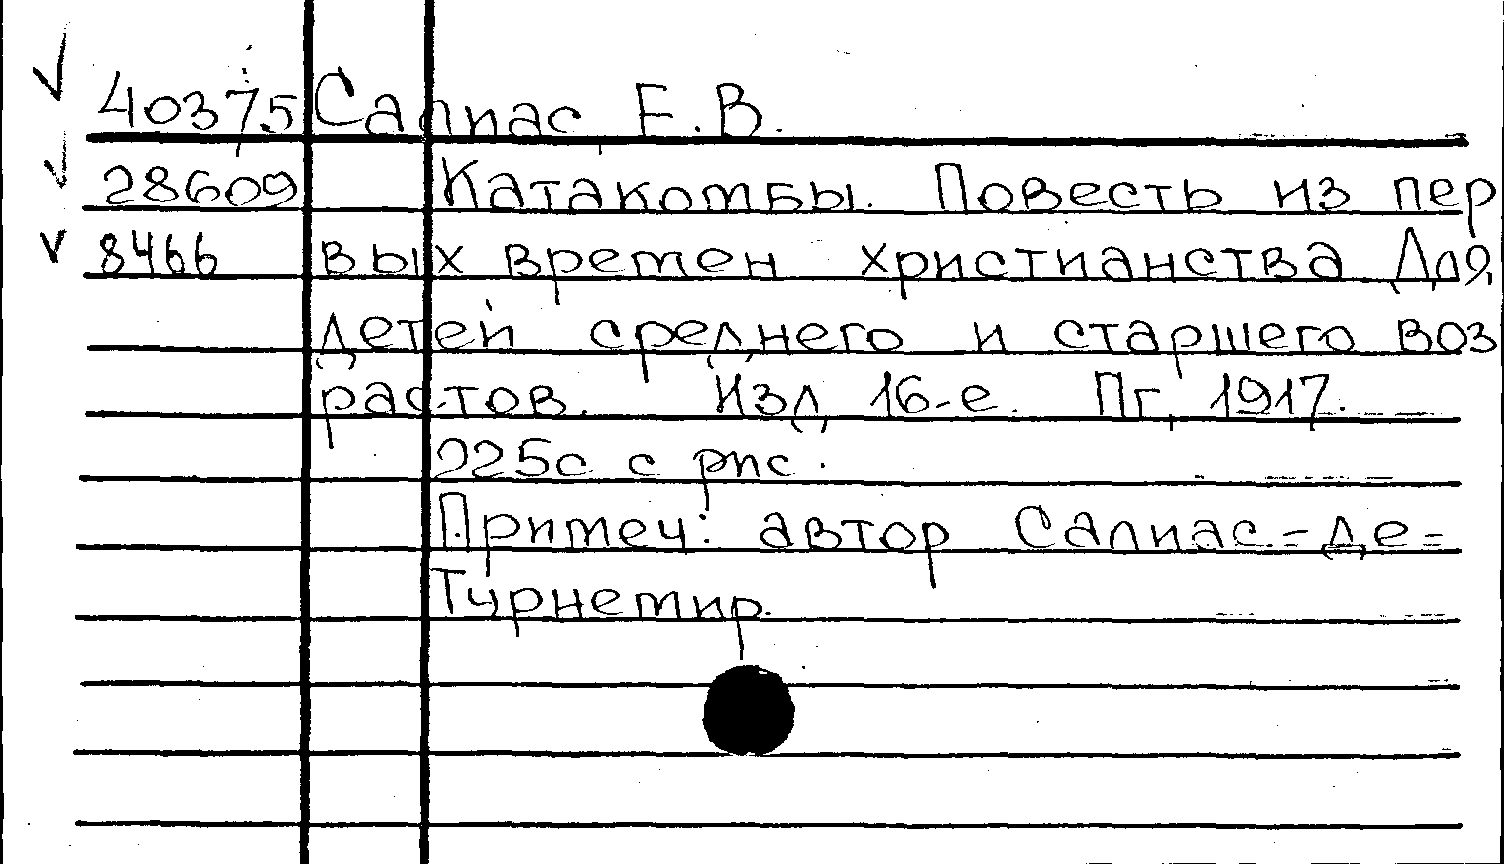 ✓ 40375 Салиас Е.В.
✓ 28609 Катакомбы. Повесть из пер
✓ 8466 вых времен христианства Для
детей среднего и старшего воз
растов. Изд 16-е. Пг, 1917.
225с с рис.
Примеч: автор Салиас-де-
Турнемир.